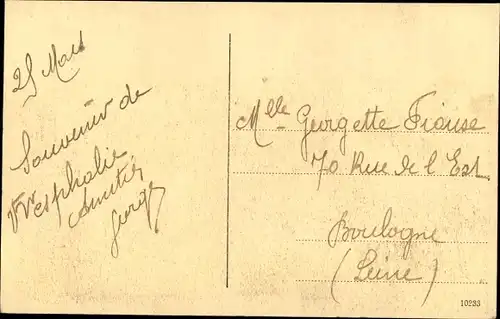 25 Mars
Souvenir de
Westphalie
Amitié
Mlle Georgette
70 Rue de l'Est
Boulogne
(Seine)
10233